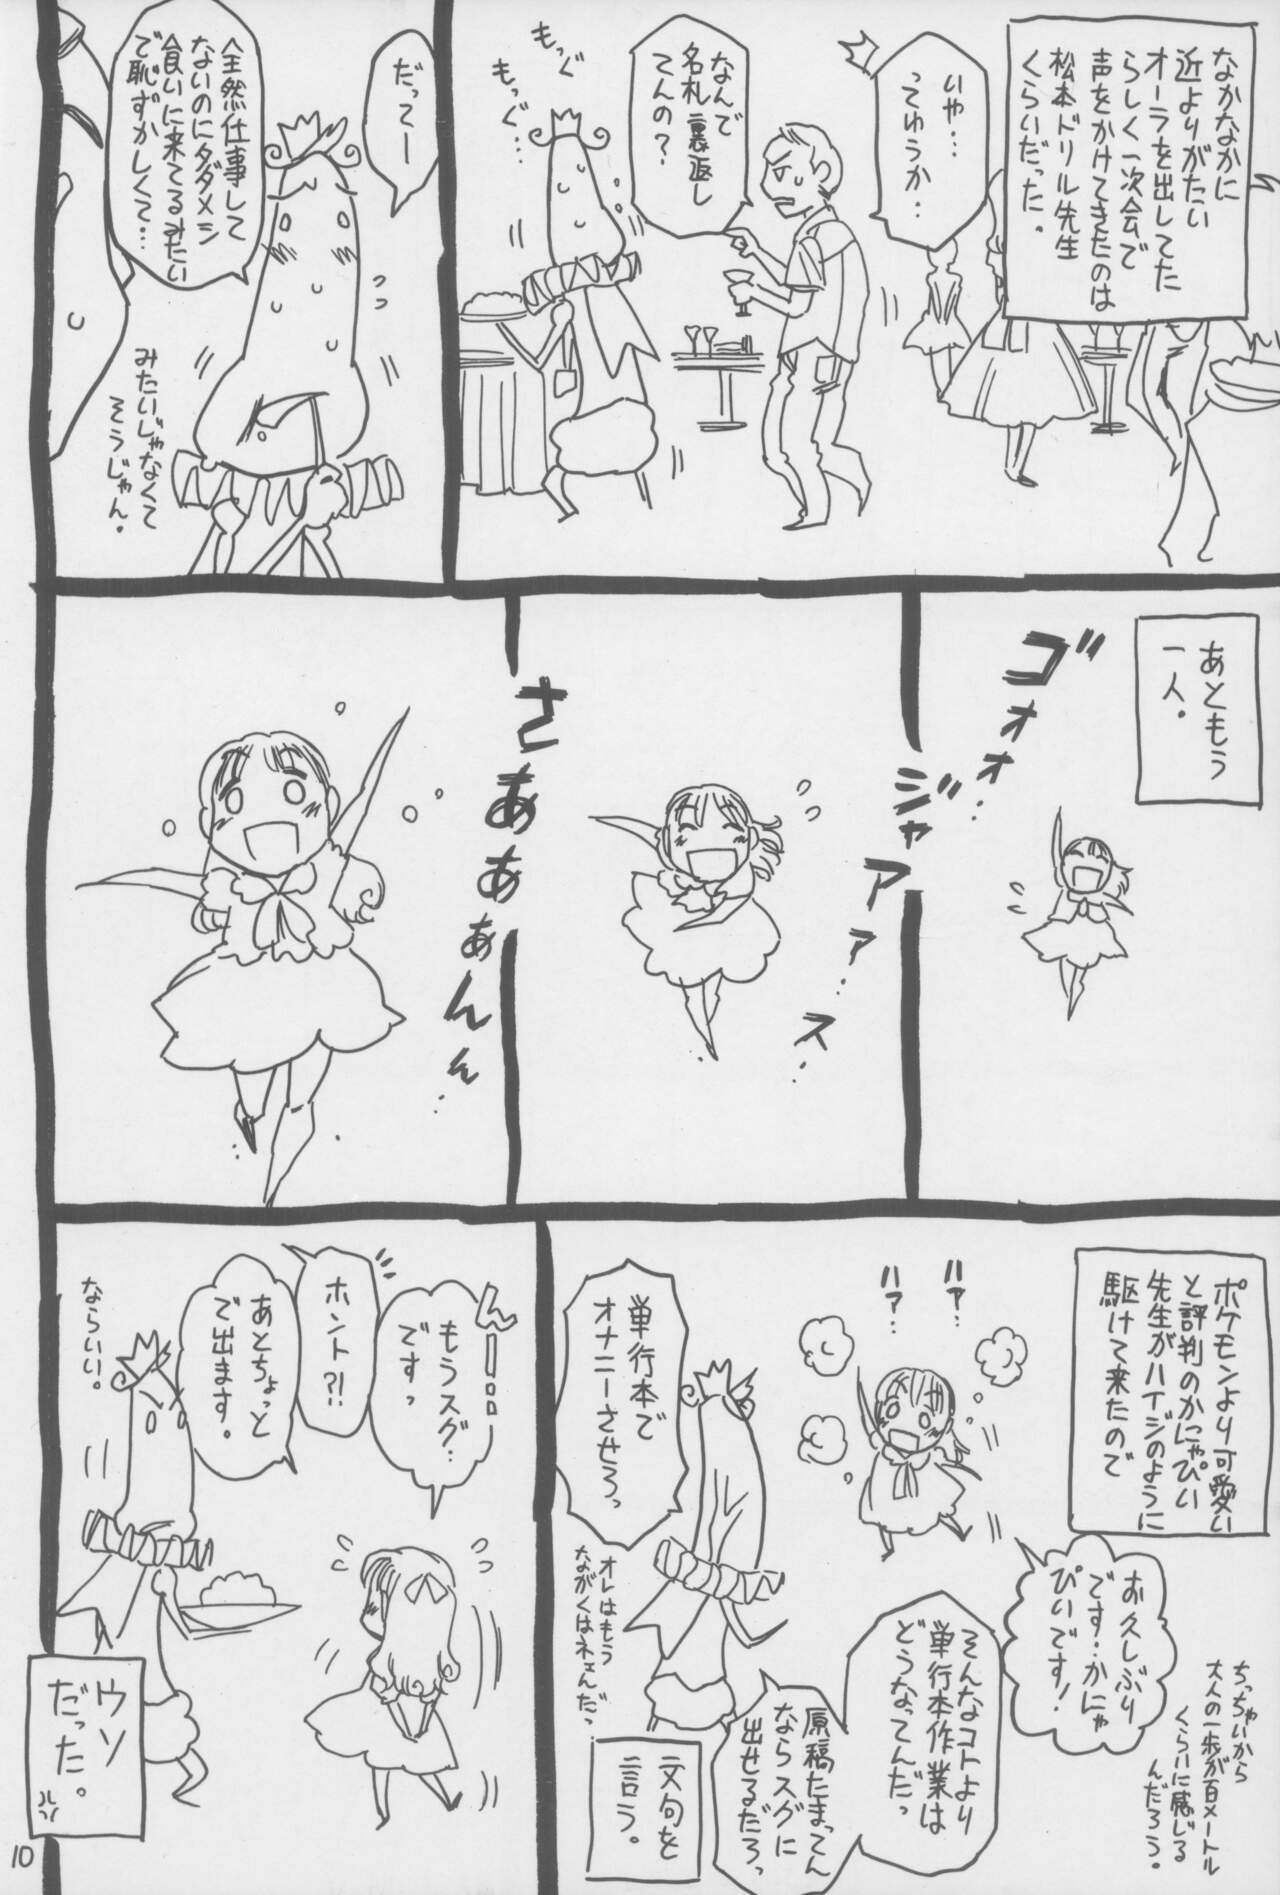 なかなかに
近よりがたい
オーラを出してた
らしく一次会で
声をかけてきたのは
松本ドリル先生
くらいだった。
いや…
ってゆうか…
なんで
名札裏返し
てんの？
もっぐ
もっぐ…
だってー
全然仕事して
ないのにタダメシ
食いに来てるみたい
で恥ずかしくて…
みたいじゃなくて
そうじゃん。
あともう
一人。
ゴォォ…
ジャアアァ…ス…
さあぁぁんん…
ポケモンより可愛い
と評判のかにゃぴい
先生がハイジのように
駆けて来たので
ハァ…
ハァ…
お久しぶり
です…かにゃ
ぴいです！
ちっちゃいから
大人の一歩が百メートル
くらいに感じる
んだろう。
そんなコトより
単行本作業は
どうなってんだっ
原稿たまってん
ならスグに
出せるだろっ
単行本で
オナニーさせろっ
オレはもう
ながくはネェんだっ
文句を
言う。
んー…
もうスグ…
ですっ
ホント?!
あとちょっと
で出ます。
ならいい。
ウソ
だった。
10